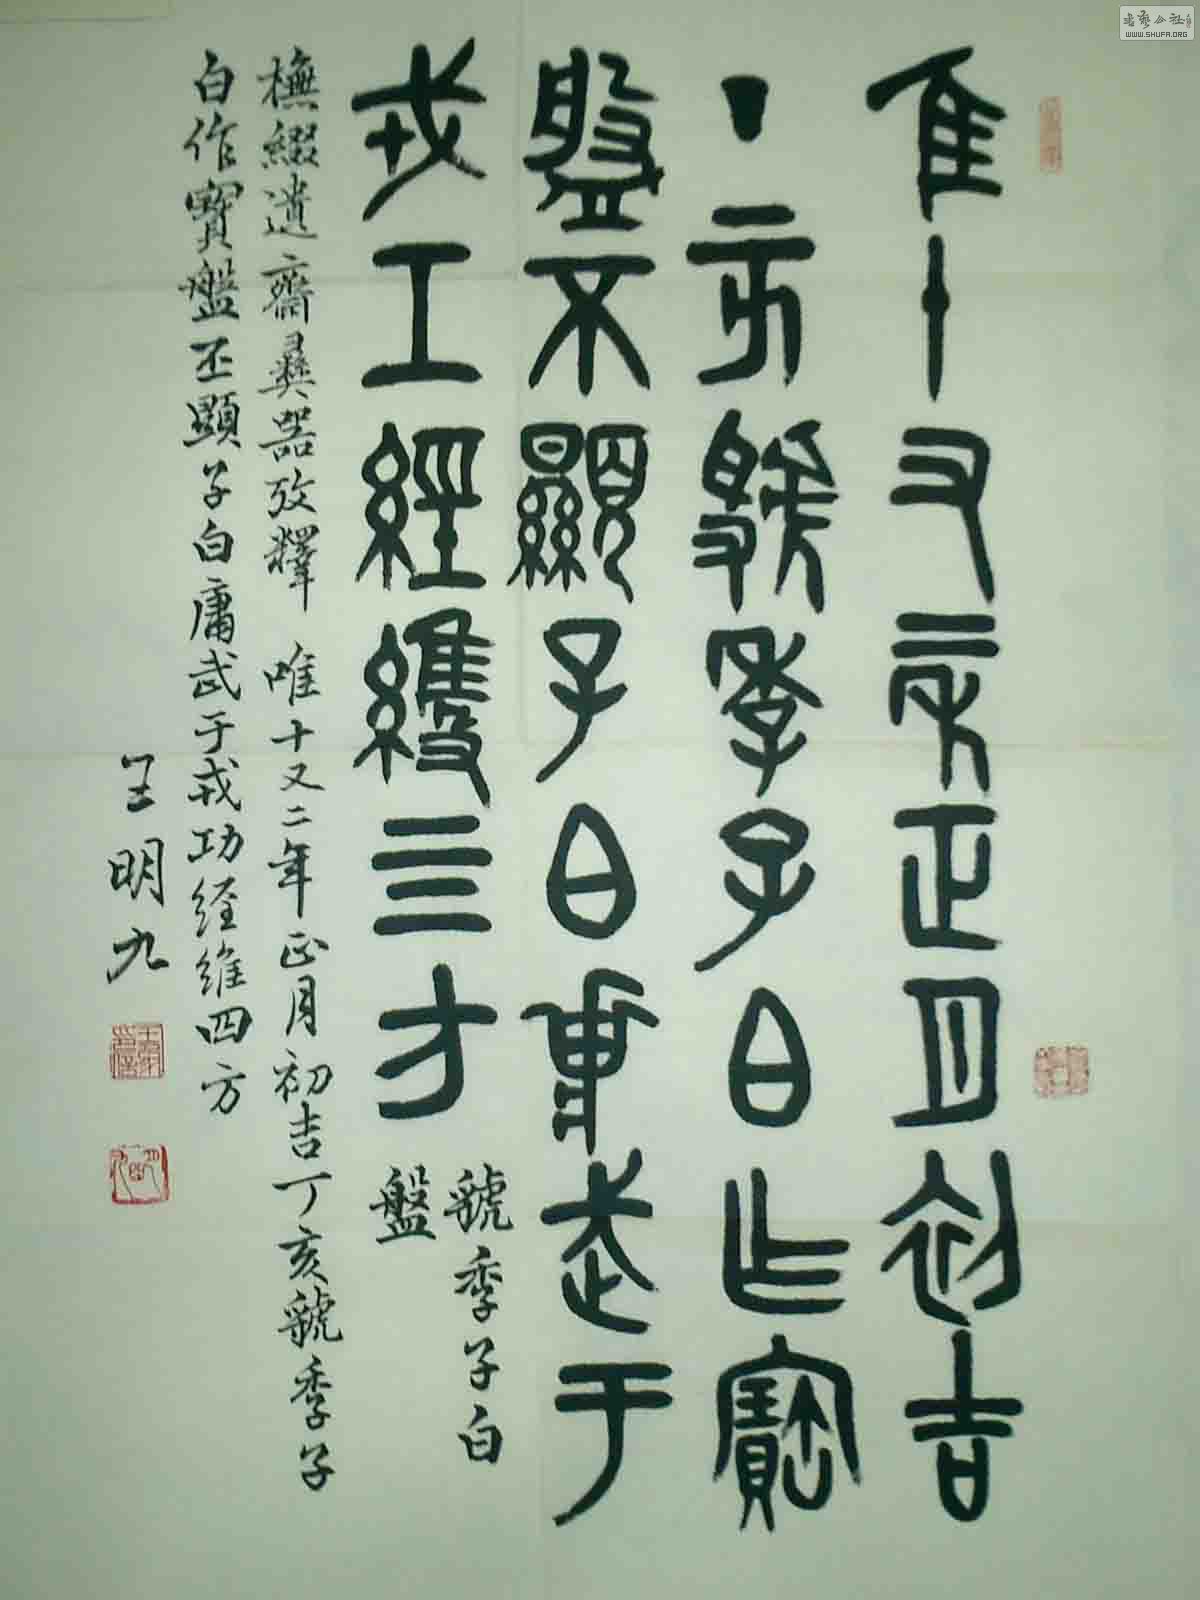 隹十又二年正月初吉
丁亥虢季子白乍寶
盤不顯子白庸武于
戎工經維四方
虢季子白
盤
橅綴遺齋彝器攷釋 唯十又二年正月初吉丁亥虢季子
白作寶盤丕顯子白庸武于戎功经维四方
王明九
书艺公社
WWW.SHUFA.ORG